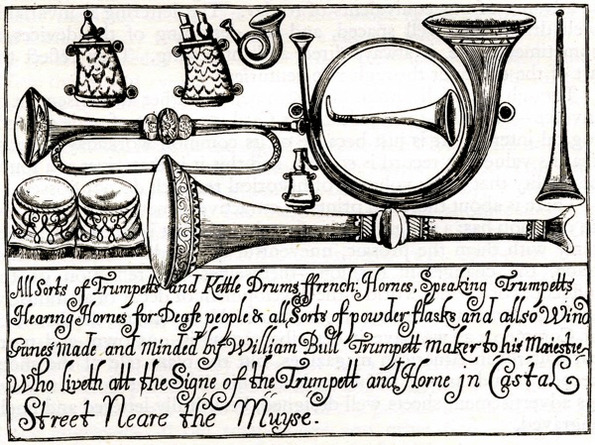 All Sorts of Trumpetts and Kettle Drums ffrench; Hornes, Speaking Trumpetts
Hearing Hornes for Deafe people & all Sorts of powder flasks and allso Wind
Gunes made and minded by William Bull Trumpett maker to his Maiestie
Who liveth att the Signe of the Trumpett and Horne in CastaL
Street Neare the Muyse.